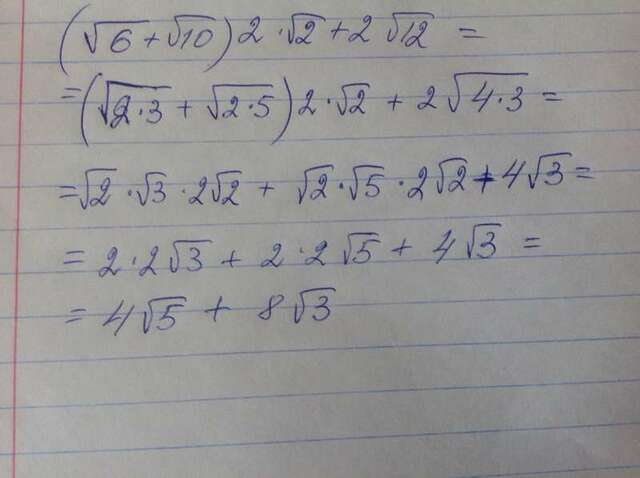 (√6 + √10) 2 · √2 + 2 √12 =
= (√2·3 + √2·5) 2 · √2 + 2 √4·3 =
= √2 · √3 · 2√2 + √2 · √5 · 2√2 + 4√3 =
= 2 · 2√3 + 2 · 2√5 + 4√3 =
= 4√5 + 8√3